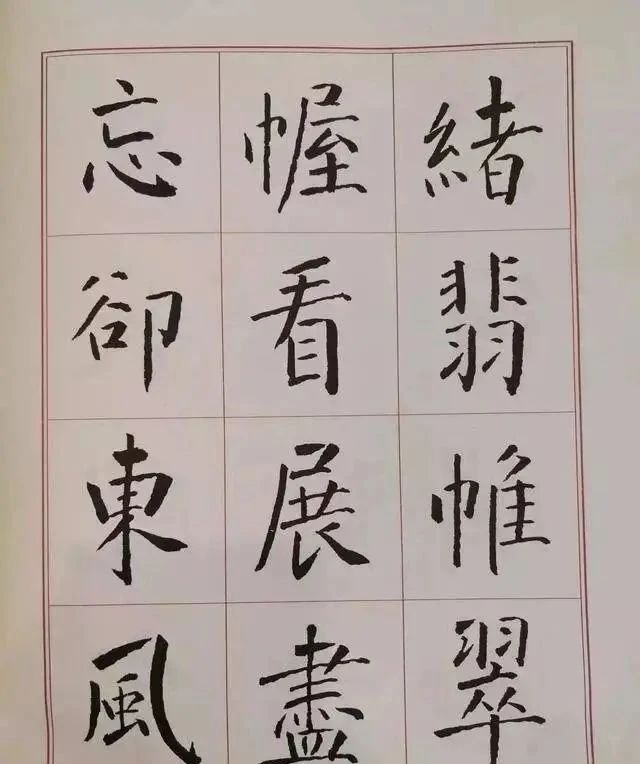 緒翡帷翠
幄看展盡
忘卻東風